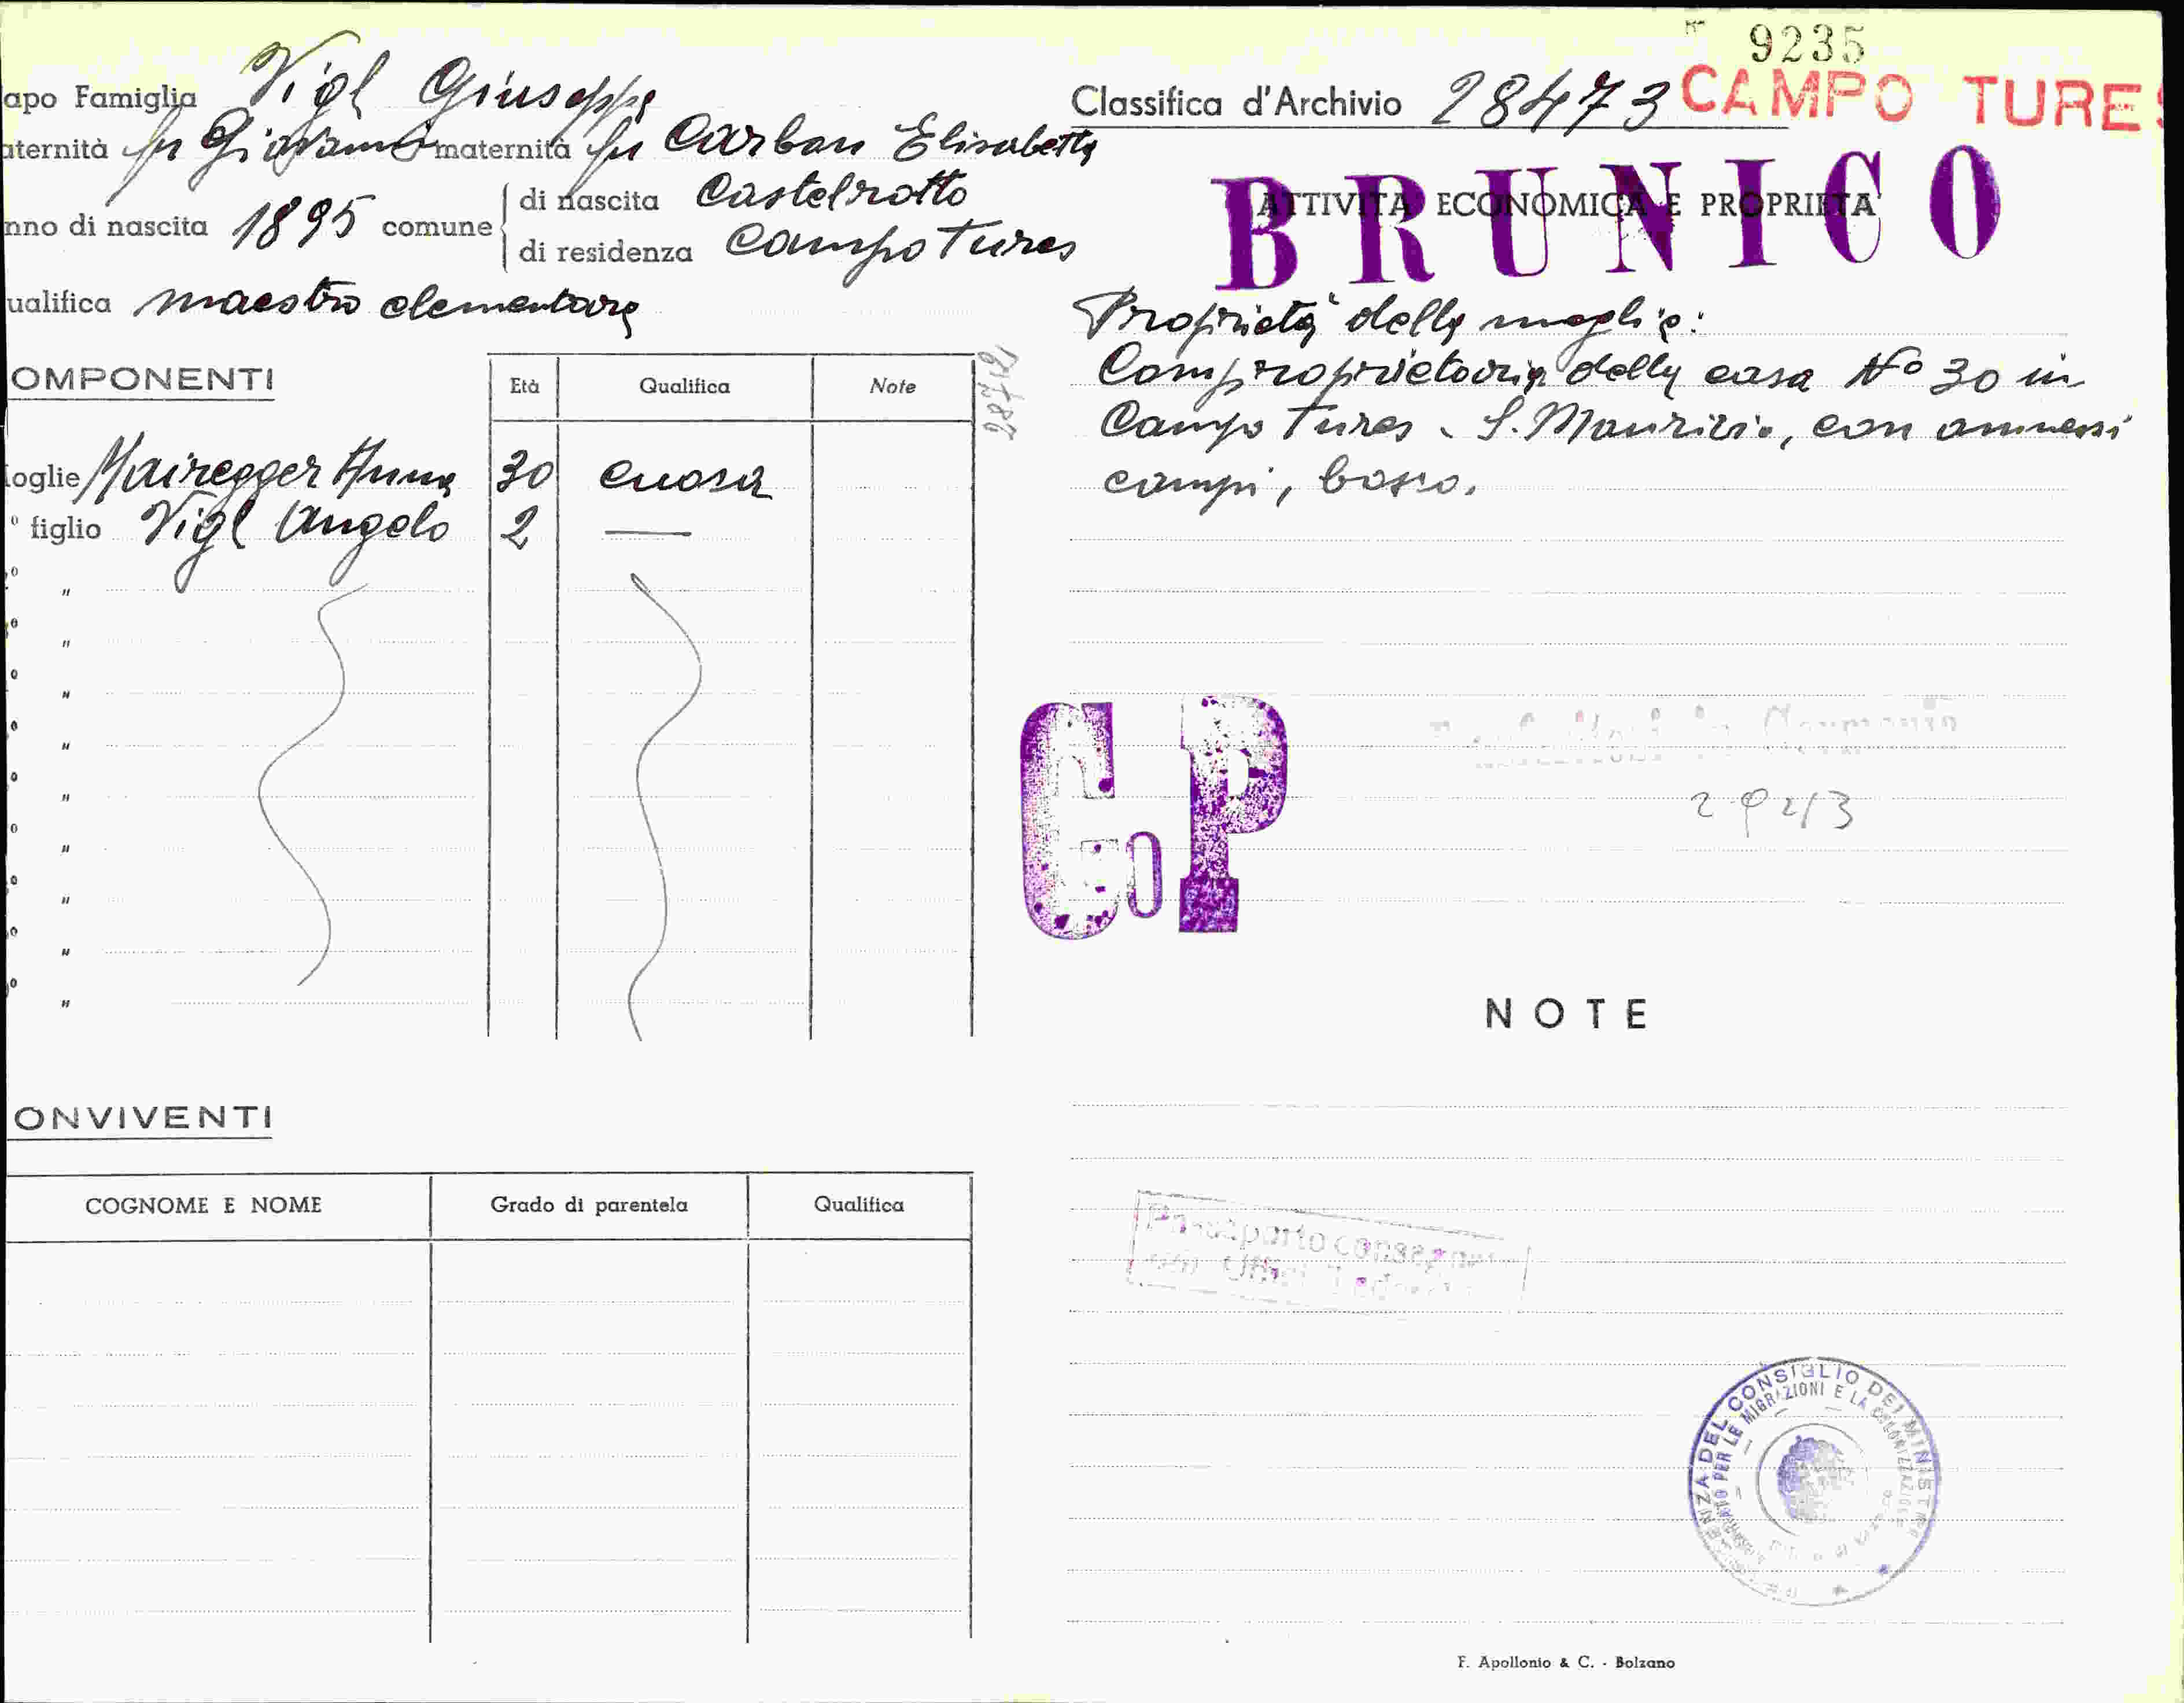 Nº 9235
apo Famiglia Vigl Giuseppe
aternità fu Giovanni maternità fu Carbon Elisabetta
nno di nascita 1895 comune di nascita Castelrotto
di residenza Campo Tures
ualifica maestro elementare
OMPONENTI Età Qualifica Note
28712
oglie Mairegger Anna 30 cuoca
º figlio Vigl Angelo 2 —
º "
º "
º "
º "
º "
º "
º "
º "
º "
ONVIVENTI
COGNOME E NOME Grado di parentela Qualifica
Classifica d'Archivio 28473 CAMPO TURES
BRUNICO
ATTIVITÀ ECONOMICA E PROPRIETA'
Proprietà della moglie:
Comproprietaria della casa Nº 30 in
Campo Tures - S. Maurizio, con annessi
campi, bosco.
G.P
NOTE
Passaporto consegnato
Uffici Tedeschi
CONSIGLIO DEI MINISTRI
PER LE MIGRAZIONI E LA COLONIZZAZIONE
F. Apollonio & C. - Bolzano